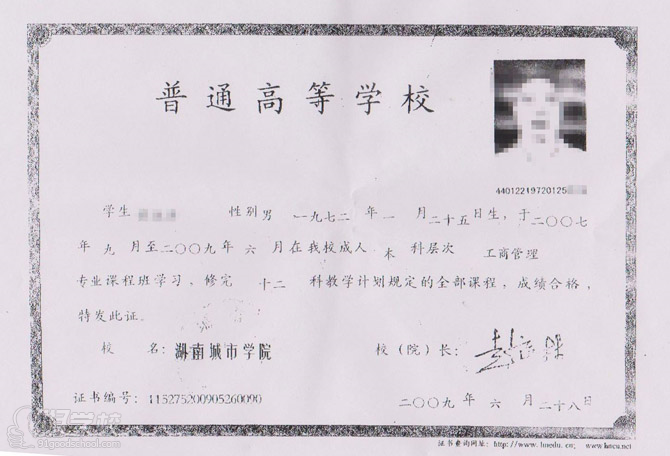 普通高等学校
44012219720125
学生 性别 男 一九七二 年 一 月 二十五日生，于二〇〇七
年 九 月至二〇〇九年 六 月在我校成人 本 科层次 工商管理
专业课程班学习，修完 十二 科教学计划规定的全部课程，成绩合格，
特发此证。
校 名：湖南城市学院 校（院）长：
证书编号：115275200905260090 二〇〇九年 六 月二十八日
证书查询网址：http://www.hnedu.cn; www.hncu.net